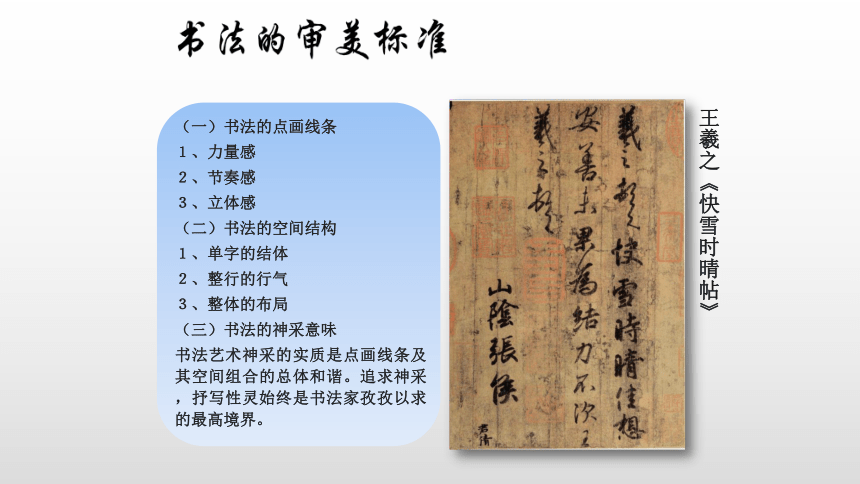 书法的审美标准
（一）书法的点画线条
１、力量感
２、节奏感
３、立体感
（二）书法的空间结构
１、单字的结体
２、整行的行气
３、整体的布局
（三）书法的神采意味
书法艺术神采的实质是点画线条及
其空间组合的总体和谐。追求神采
，抒写性灵始终是书法家孜孜以求
的最高境界。
羲之頓首快雪時晴佳想
安善未果為結力不次王
羲之頓首
山陰張侯
君倩
王羲之《快雪时晴帖》